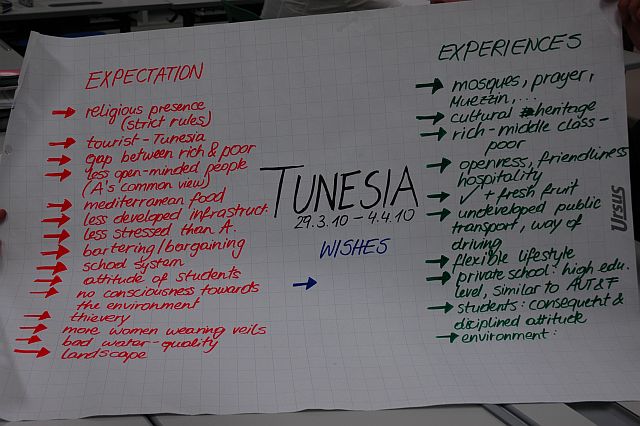 EXPECTATION
religious presence
(strict rules)
tourist - Tunesia
gap between rich & poor
less open-minded people
(A's common view)
mediterranean food
less developed infrastruct.
less stressed than A.
bartering/bargaining
school system
attitude of students
no consciousness towards
the environment
thievery
more women wearing veils
bad water-quality
landscape
TUNESIA
29.3.10 - 4.4.10
WISHES
EXPERIENCES
mosques, prayer,
Muezzin, ...
cultural heritage
rich - middle class -
poor
openness, friendliness
hospitality
✓ + fresh fruit
undeveloped public
transport, way of
driving
flexible lifestyle
private school: high edu.
level, similar to AUT&F
students: consequent &
disciplined attitude
environment:
Ursus